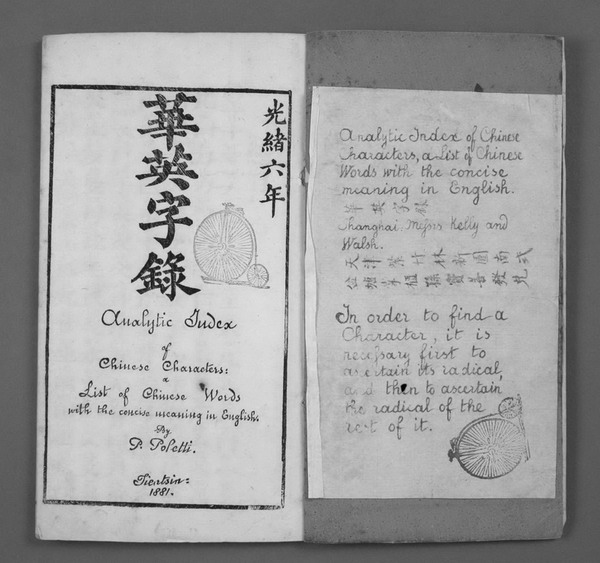 光緒六年
華英字錄
Analytic Index
of
Chinese Characters:
a
List of Chinese Words
with the concise meaning in English.
By
P. Poletti.
Tientsin:
1881.
Analytic Index of Chinese
Characters, a List of Chinese
Words with the concise
meaning in English.
華英字錄
Shanghai: Messrs Kelly and
Walsh.
天津紫竹林新
In order to find a
Character, it is
necessary first to
ascertain its radical,
and then to ascertain
the radical of the
rest of it.